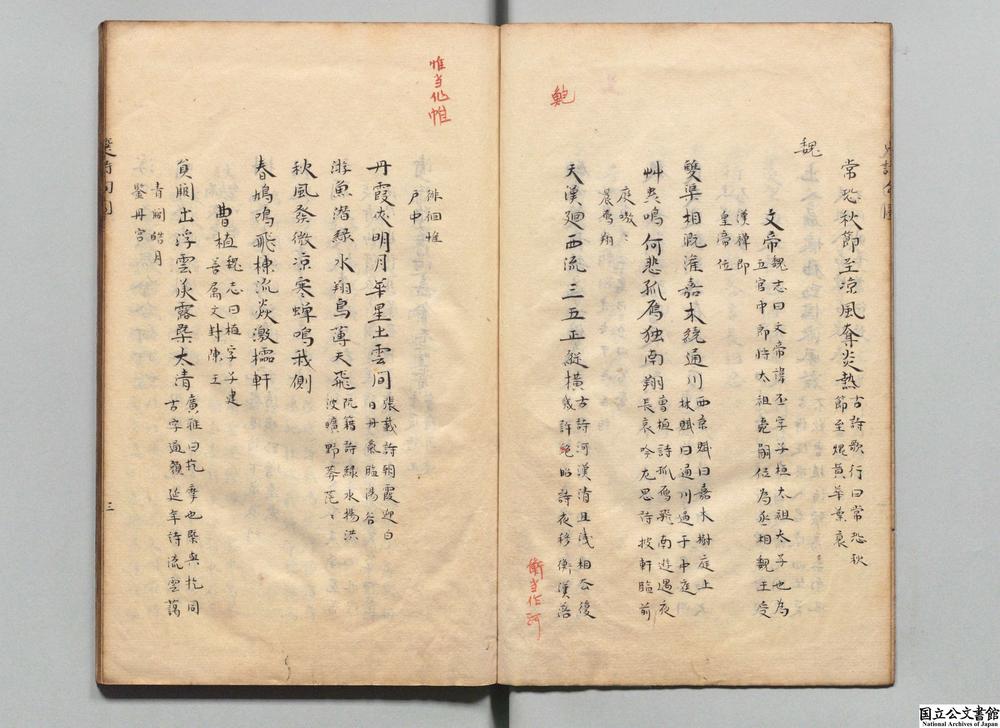 常恐秋節至凉風奪炎熱古詩歌行曰常恐秋
節至焜黄華葉衰
魏
文帝魏志曰文帝諱丕字子桓太祖太子也為
五官中郎將太祖薨嗣位為丞相魏王受
漢禅即
皇帝位
雙渠相溉灌嘉木繞通川西京賦曰嘉木樹庭
林賦曰通川過于中庭
艸虫鳴何悲孤鴈独南翔曹植詩孤鴈飛南遊過
長哀吟
披軒臨前
庭嗷〻
晨鴈翔
鮑
天漢廻西流三五正縱横古詩河漢清且浅相去後
幾許鮑昭詩夜移衡漢落
衡当作河
徘徊惟
戸中
惟当作帷
丹霞夾明月華星出雲間張載詩朝霞迎白
日丹氣臨陽谷
游魚潜緑水翔鳥薄天飛阮籍詩緑水揚洪
波曠野莽茫〻
秋風發微凉寒蝉鳴我側
春鳩鳴飛棟流猋激櫺軒
曹植魏志曰植字子建
善属文封陳王
員闕出浮雲承露槩太清廣雅曰扢摩也槩與扢同
古字通顔延年詩流雲藹
青闕皓月
鑒丹宮
三
国立公文書館
National Archives of Japan